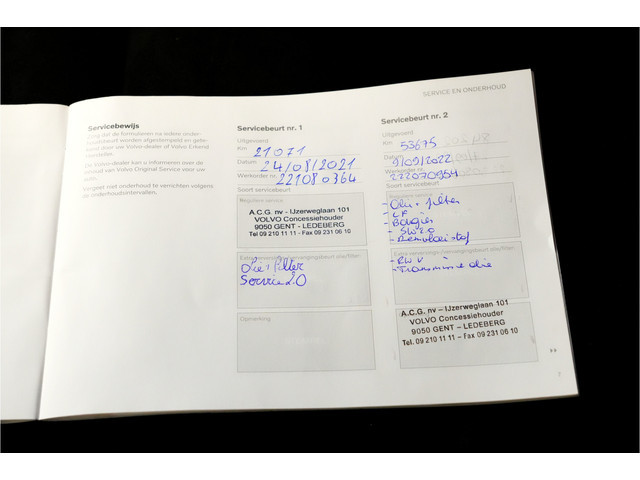 SERVICE EN ONDERHOUD
Servicebewijs
Zorg dat de formulieren na iedere onder-
houdsbeurt worden afgestempeld en gete-
kend door uw Volvo-dealer of Volvo Erkend
Hersteller.
Uw Volvo-dealer kan u informeren over de
inhoud van Volvo Original Service voor uw
auto.
Vergeet niet onderhoud te verrichten volgens
de onderhoudsintervallen.
Servicebeurt nr. 1
Uitgevoerd
Km 21071
Datum 24/08/2021
Werkorder nr. 221080364
Soort servicebeurt
Reguliere service
A.C.G. nv - IJzerweglaan 101
VOLVO Concessiehouder
9050 GENT - LEDEBERG
Tel 09 210 11 11 - Fax 09 231 06 10
Olie + filter
Service 2.0
Opmerking
Servicebeurt nr. 2
Uitgevoerd
Km 53675
Datum 9/09/2022
Werkorder nr. 222070954
Soort servicebeurt
Reguliere service
- Olie + filter
- LF
- Bougies
- SW 2.0
- Remvloeistof
- RWV
- Transmissie olie
A.C.G. nv - IJzerweglaan 101
VOLVO Concessiehouder
9050 GENT - LEDEBERG
Tel. 09 210 11 11 - Fax 09 231 06 10